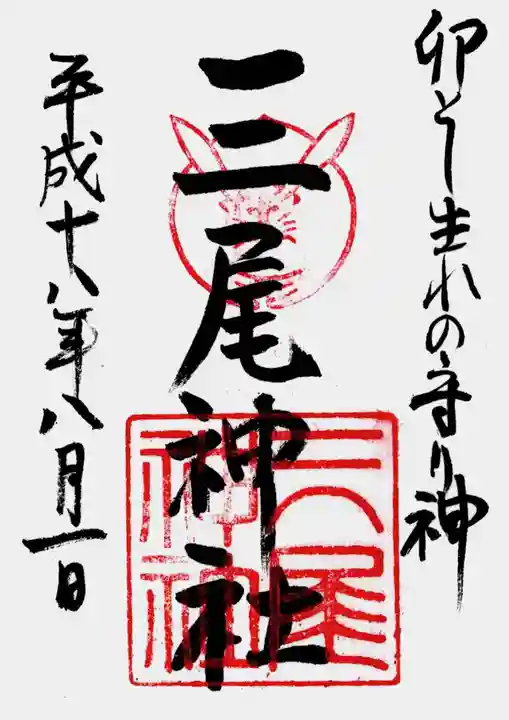 卯とし生れの守り神
三尾神社
三尾神社
平成十八年八月一日